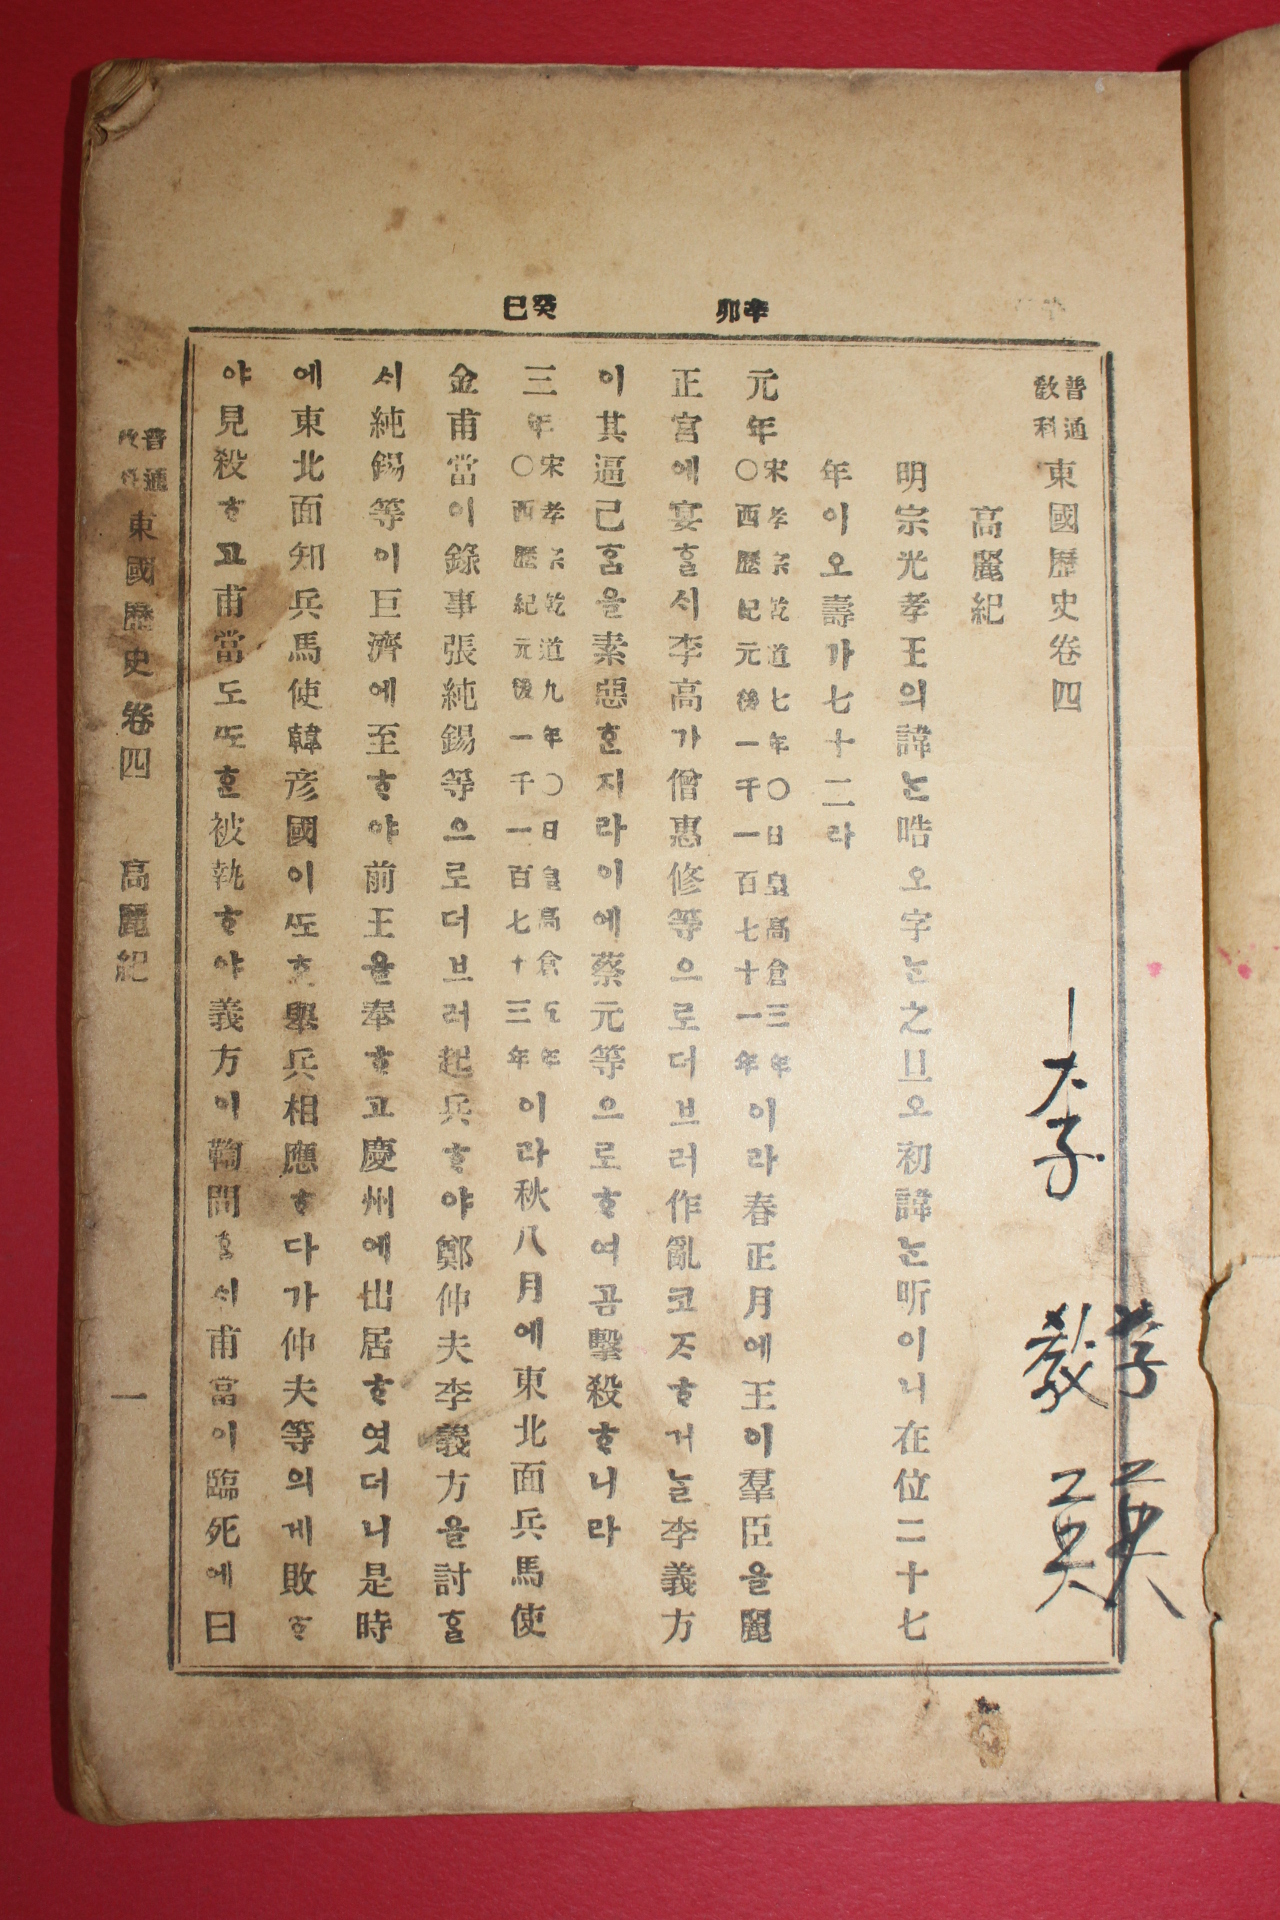 普通敎科 東國歷史卷四
高麗紀
明宗光孝王의諱ᄂᆞᆫ晧오字ᄂᆞᆫ之旦오初諱ᄂᆞᆫ昕이니在位二十七
年이오壽가七十二라
辛卯
元年宋孝宗乾道七年〇日皇高倉三年〇西歷紀元後一千一百七十一年이라春正月에王이羣臣을麗
正宮에宴ᄒᆞᆯ시李高가僧惠修等으로더브러作亂코ᄌᆞᄒᆞ거ᄂᆞᆯ李義方
이其逼己홈을素惡ᄒᆞᆫ지라이에蔡元等으로ᄒᆞ여곰擊殺ᄒᆞ니라
癸巳
三年宋孝宗乾道九年〇日皇高倉五年〇西歷紀元後一千一百七十三年이라秋八月에東北面兵馬使
金甫當이錄事張純錫等으로더브러起兵ᄒᆞ야鄭仲夫李義方을討ᄒᆞᆯ
시純錫等이巨濟에至ᄒᆞ야前王을奉ᄒᆞ고慶州에出居ᄒᆞ엿더니是時
에東北面知兵馬使韓彦國이ᄯᅩᄒᆞᆫ擧兵相應ᄒᆞ다가仲夫等의게敗ᄒᆞ
야見殺ᄒᆞ고甫當도ᄯᅩᄒᆞᆫ被執ᄒᆞ야義方이鞫問ᄒᆞᆯᄉᆡ甫當이臨死에曰
普通敎科 東國歷史 卷四 高麗紀 一
李
敎
英